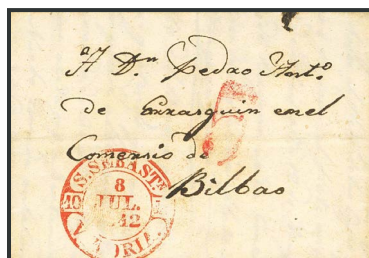 A Dn. Pedro Anto.
de Errasquin en el
Comersio de
Bilbao
5
S. SEBAST
10
8
JUL.
42
VITORIA.